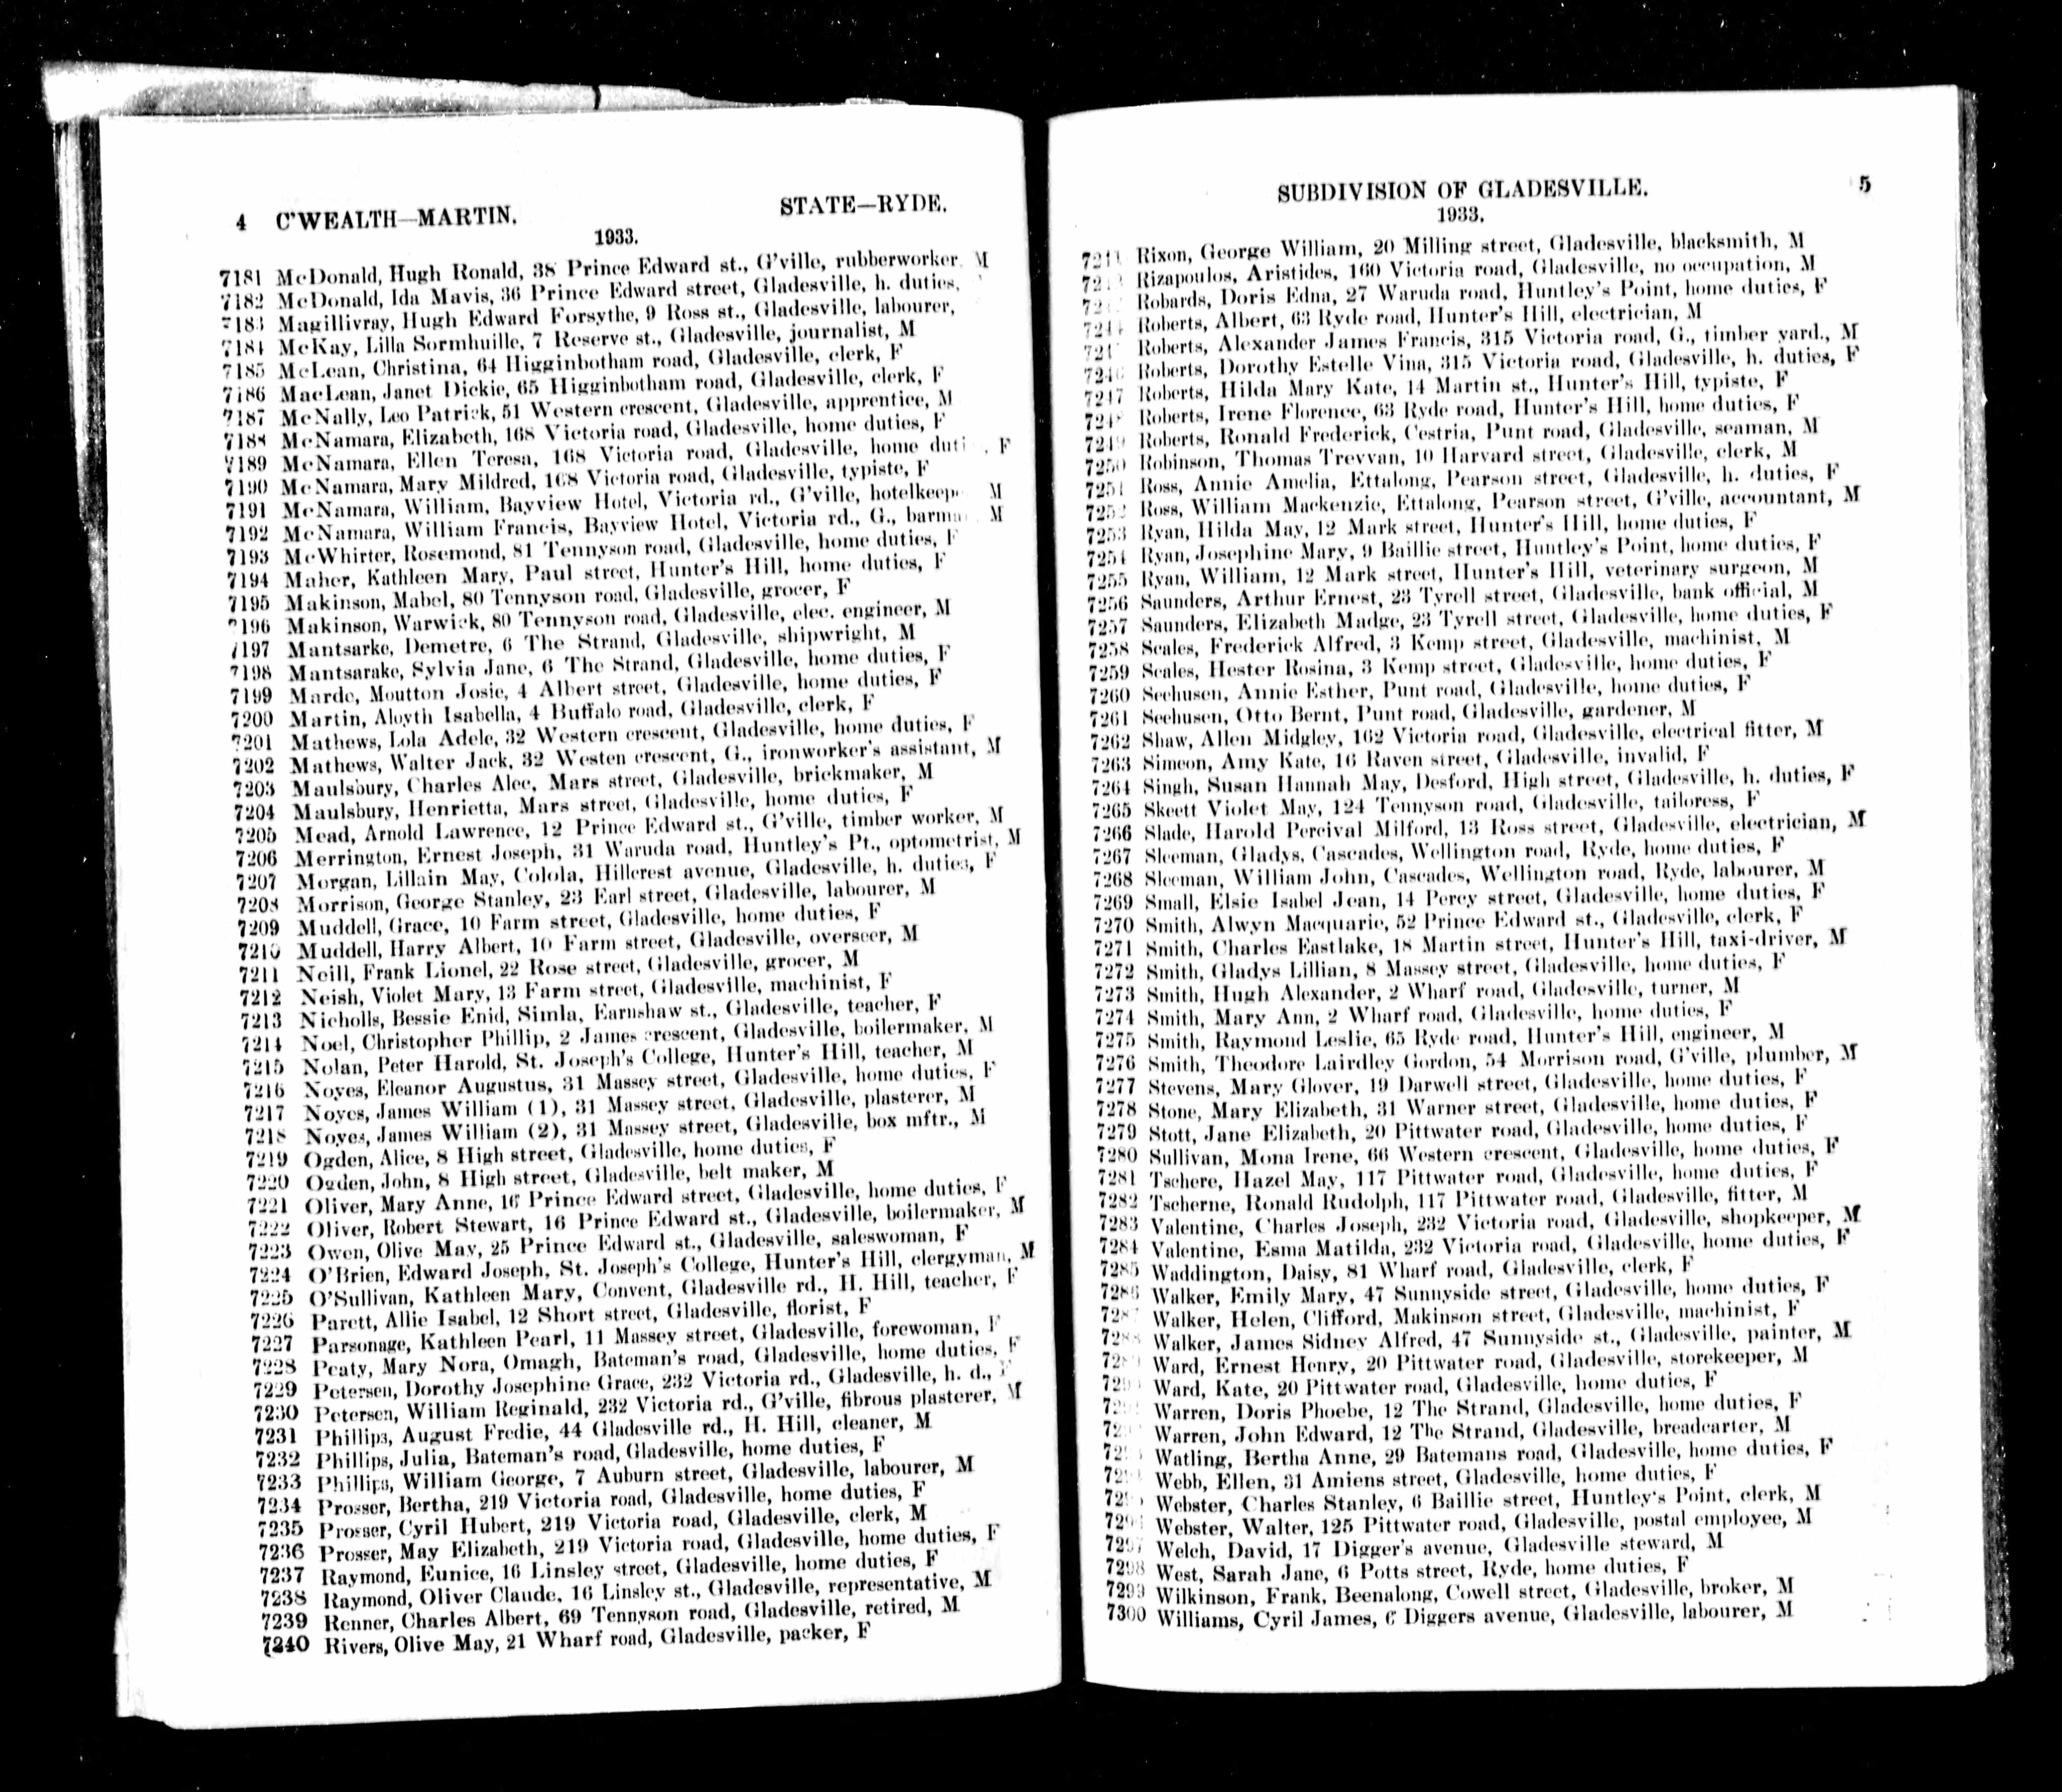 4 C'WEALTH—MARTIN. STATE—RYDE.
1933.
7181 McDonald, Hugh Ronald, 38 Prince Edward st., G'ville, rubberworker, M
7182 McDonald, Ida Mavis, 36 Prince Edward street, Gladesville, h. duties,
7183 Magillivray, Hugh Edward Forsythe, 9 Ross st., Gladesville, labourer,
7184 McKay, Lilla Sormhuille, 7 Reserve st., Gladesville, journalist, M
7185 McLean, Christina, 64 Higginbotham road, Gladesville, clerk, F
7186 MacLean, Janet Dickie, 65 Higginbotham road, Gladesville, clerk, F
7187 McNally, Leo Patrick, 51 Western crescent, Gladesville, apprentice, M
7188 McNamara, Elizabeth, 168 Victoria road, Gladesville, home duties, F
7189 McNamara, Ellen Teresa, 168 Victoria road, Gladesville, home duti , F
7190 McNamara, Mary Mildred, 168 Victoria road, Gladesville, typiste, F
7191 McNamara, William, Bayview Hotel, Victoria rd., G'ville, hotelkeep M
7192 McNamara, William Francis, Bayview Hotel, Victoria rd., G., barma M
7193 McWhirter, Rosemond, 81 Tennyson road, Gladesville, home duties, F
7194 Maher, Kathleen Mary, Paul street, Hunter's Hill, home duties, F
7195 Makinson, Mabel, 80 Tennyson road, Gladesville, grocer, F
7196 Makinson, Warwick, 80 Tennyson road, Gladesville, elec. engineer, M
7197 Mantsarke, Demetre, 6 The Strand, Gladesville, shipwright, M
7198 Mantsarake, Sylvia Jane, 6 The Strand, Gladesville, home duties, F
7199 Marde, Moutton Josie, 4 Albert street, Gladesville, home duties, F
7200 Martin, Aloyth Isabella, 4 Buffalo road, Gladesville, clerk, F
7201 Mathews, Lola Adele, 32 Western crescent, Gladesville, home duties, F
7202 Mathews, Walter Jack, 32 Westen crescent, G., ironworker's assistant, M
7203 Maulsbury, Charles Alec, Mars street, Gladesville, brickmaker, M
7204 Maulsbury, Henrietta, Mars street, Gladesville, home duties, F
7205 Mead, Arnold Lawrence, 12 Prince Edward st., G'ville, timber worker, M
7206 Merrington, Ernest Joseph, 31 Waruda road, Huntley's Pt., optometrist, M
7207 Morgan, Lillain May, Colola, Hillcrest avenue, Gladesville, h. duties, F
7208 Morrison, George Stanley, 23 Earl street, Gladesville, labourer, M
7209 Muddell, Grace, 10 Farm street, Gladesville, home duties, F
7210 Muddell, Harry Albert, 10 Farm street, Gladesville, overseer, M
7211 Neill, Frank Lionel, 22 Rose street, Gladesville, grocer, M
7212 Neish, Violet Mary, 13 Farm street, Gladesville, machinist, F
7213 Nicholls, Bessie Enid, Simla, Earnshaw st., Gladesville, teacher, F
7214 Noel, Christopher Phillip, 2 James crescent, Gladesville, boilermaker, M
7215 Nolan, Peter Harold, St. Joseph's College, Hunter's Hill, teacher, M
7216 Noyes, Eleanor Augustus, 31 Massey street, Gladesville, home duties, F
7217 Noyes, James William (1), 31 Massey street, Gladesville, plasterer, M
7218 Noyes, James William (2), 31 Massey street, Gladesville, box mftr., M
7219 Ogden, Alice, 8 High street, Gladesville, home duties, F
7220 Ogden, John, 8 High street, Gladesville, belt maker, M
7221 Oliver, Mary Anne, 16 Prince Edward street, Gladesville, home duties, F
7222 Oliver, Robert Stewart, 16 Prince Edward st., Gladesville, boilermaker, M
7223 Owen, Olive May, 25 Prince Edward st., Gladesville, saleswoman, F
7224 O'Brien, Edward Joseph, St. Joseph's College, Hunter's Hill, clergyman, M
7225 O'Sullivan, Kathleen Mary, Convent, Gladesville rd., H. Hill, teacher, F
7226 Parett, Allie Isabel, 12 Short street, Gladesville, florist, F
7227 Parsonage, Kathleen Pearl, 11 Massey street, Gladesville, forewoman, F
7228 Peaty, Mary Nora, Omagh, Bateman's road, Gladesville, home duties, F
7229 Petersen, Dorothy Josephine Grace, 232 Victoria rd., Gladesville, h. d., F
7230 Petersen, William Reginald, 232 Victoria rd., G'ville, fibrous plasterer, M
7231 Phillips, August Fredie, 44 Gladesville rd., H. Hill, cleaner, M
7232 Phillips, Julia, Bateman's road, Gladesville, home duties, F
7233 Phillips, William George, 7 Auburn street, Gladesville, labourer, M
7234 Prosser, Bertha, 219 Victoria road, Gladesville, home duties, F
7235 Prosser, Cyril Hubert, 219 Victoria road, Gladesville, clerk, M
7236 Prosser, May Elizabeth, 219 Victoria road, Gladesville, home duties, F
7237 Raymond, Eunice, 16 Linsley street, Gladesville, home duties, F
7238 Raymond, Oliver Claude, 16 Linsley st., Gladesville, representative, M
7239 Renner, Charles Albert, 69 Tennyson road, Gladesville, retired, M
7240 Rivers, Olive May, 21 Wharf road, Gladesville, packer, F
SUBDIVISION OF GLADESVILLE. 5
1933.
Rixon, George William, 20 Milling street, Gladesville, blacksmith, M
Rizapoulos, Aristides, 160 Victoria road, Gladesville, no occupation, M
Robards, Doris Edna, 27 Waruda road, Huntley's Point, home duties, F
7244 Roberts, Albert, 63 Ryde road, Hunter's Hill, electrician, M
Roberts, Alexander James Francis, 315 Victoria road, G., timber yard., M
7246 Roberts, Dorothy Estelle Vina, 315 Victoria road, Gladesville, h. duties, F
7247 Roberts, Hilda Mary Kate, 14 Martin st., Hunter's Hill, typiste, F
7248 Roberts, Irene Florence, 63 Ryde road, Hunter's Hill, home duties, F
7249 Roberts, Ronald Frederick, Cestria, Punt road, Gladesville, seaman, M
7250 Robinson, Thomas Trevvan, 10 Harvard street, Gladesville, clerk, M
7251 Ross, Annie Amelia, Ettalong, Pearson street, Gladesville, h. duties, F
7252 Ross, William Mackenzie, Ettalong, Pearson street, G'ville, accountant, M
7253 Ryan, Hilda May, 12 Mark street, Hunter's Hill, home duties, F
7254 Ryan, Josephine Mary, 9 Baillie street, Huntley's Point, home duties, F
7255 Ryan, William, 12 Mark street, Hunter's Hill, veterinary surgeon, M
7256 Saunders, Arthur Ernest, 23 Tyrell street, Gladesville, bank official, M
7257 Saunders, Elizabeth Madge, 23 Tyrell street, Gladesville, home duties, F
7258 Scales, Frederick Alfred, 3 Kemp street, Gladesville, machinist, M
7259 Scales, Hester Rosina, 3 Kemp street, Gladesville, home duties, F
7260 Seehusen, Annie Esther, Punt road, Gladesville, home duties, F
7261 Seehusen, Otto Bernt, Punt road, Gladesville, gardener, M
7262 Shaw, Allen Midgley, 162 Victoria road, Gladesville, electrical fitter, M
7263 Simeon, Amy Kate, 16 Raven street, Gladesville, invalid, F
7264 Singh, Susan Hannah May, Desford, High street, Gladesville, h. duties, F
7265 Skeett Violet May, 124 Tennyson road, Gladesville, tailoress, F
7266 Slade, Harold Percival Milford, 13 Ross street, Gladesville, electrician, M
7267 Sleeman, Gladys, Cascades, Wellington road, Ryde, home duties, F
7268 Sleeman, William John, Cascades, Wellington road, Ryde, labourer, M
7269 Small, Elsie Isabel Jean, 14 Percy street, Gladesville, home duties, F
7270 Smith, Alwyn Macquarie, 52 Prince Edward st., Gladesville, clerk, F
7271 Smith, Charles Eastlake, 18 Martin street, Hunter's Hill, taxi-driver, M
7272 Smith, Gladys Lillian, 8 Massey street, Gladesville, home duties, F
7273 Smith, Hugh Alexander, 2 Wharf road, Gladesville, turner, M
7274 Smith, Mary Ann, 2 Wharf road, Gladesville, home duties, F
7275 Smith, Raymond Leslie, 65 Ryde road, Hunter's Hill, engineer, M
7276 Smith, Theodore Lairdley Gordon, 54 Morrison road, G'ville, plumber, M
7277 Stevens, Mary Glover, 19 Darwell street, Gladesville, home duties, F
7278 Stone, Mary Elizabeth, 31 Warner street, Gladesville, home duties, F
7279 Stott, Jane Elizabeth, 20 Pittwater road, Gladesville, home duties, F
7280 Sullivan, Mona Irene, 66 Western crescent, Gladesville, home duties, F
7281 Tschere, Hazel May, 117 Pittwater road, Gladesville, home duties, F
7282 Tscherne, Ronald Rudolph, 117 Pittwater road, Gladesville, fitter, M
7283 Valentine, Charles Joseph, 232 Victoria road, Gladesville, shopkeeper, M
7284 Valentine, Esma Matilda, 232 Victoria road, Gladesville, home duties, F
7285 Waddington, Daisy, 81 Wharf road, Gladesville, clerk, F
7286 Walker, Emily Mary, 47 Sunnyside street, Gladesville, home duties, F
Walker, Helen, Clifford, Makinson street, Gladesville, machinist, F
7288 Walker, James Sidney Alfred, 47 Sunnyside st., Gladesville, painter, M
Ward, Ernest Henry, 20 Pittwater road, Gladesville, storekeeper, M
Ward, Kate, 20 Pittwater road, Gladesville, home duties, F
Warren, Doris Phoebe, 12 The Strand, Gladesville, home duties, F
Warren, John Edward, 12 The Strand, Gladesville, breadcarter, M
Watling, Bertha Anne, 29 Batemans road, Gladesville, home duties, F
Webb, Ellen, 31 Amiens street, Gladesville, home duties, F
Webster, Charles Stanley, 6 Baillie street, Huntley's Point, clerk, M
Webster, Walter, 125 Pittwater road, Gladesville, postal employee, M
7297 Welch, David, 17 Digger's avenue, Gladesville steward, M
7298 West, Sarah Jane, 6 Potts street, Ryde, home duties, F
7299 Wilkinson, Frank, Beenalong, Cowell street, Gladesville, broker, M
7300 Williams, Cyril James, 6 Diggers avenue, Gladesville, labourer, M